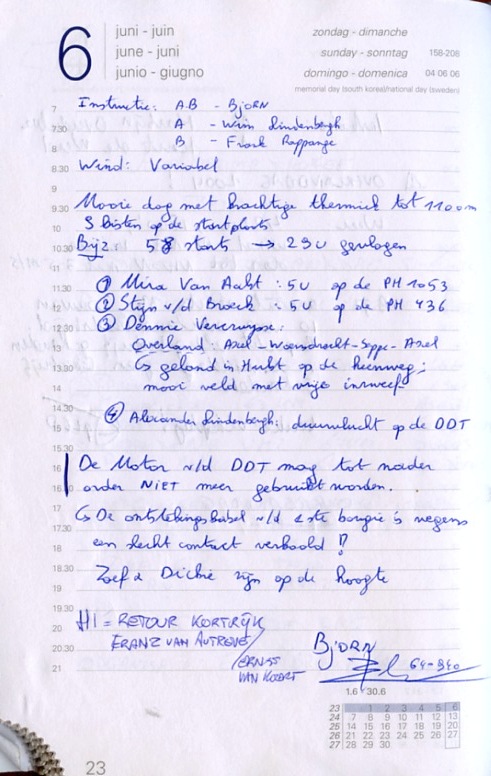 6
juni - juin
june - juni
junio - giugno
zondag - dimanche
sunday - sonntag 158-208
domingo - domenica 04 06 06
memorial day (south korea)/national day (sweden)
7 Instructie: AB - BJORN
7.30 A - Wim Lindenbergh
8 B - Frank Rappange
8.30 Wind: Variabel
9
9.30 Mooie dag met krachtige thermiek tot 1100m
10 3 listen op de startplaats
10.30 Bijz: 58 starts → 29u gevlogen
11
11.30 ① Mira Van Aalst : 5u op de PH 1053
12 ② Stijn v/d Broeck : 5u op de PH 436
12.30 ③ Dennie Vercruysse:
13 Overland: Axel - Woensdrecht - Seppe - Axel
13.30 ↳ geland in Hulst op de heenweg;
14 mooi veld met vrije inzweef.
14.30
15 ④ Alexander Lindenbergh: duurvlucht op de DDT
15.30
16 De Motor v/d DDT mag tot nader
16.30 order NIET meer gebruikt worden.
17 ↳ De ontstekingskabel v/d 2ste bougie is wegens
17.30
18 een slecht contract verkoold !!
18.30
19 Zoef & Dickie zijn op de hoogte
19.30 H1 = RETOUR KORTRIJK
20 FRANZ VAN AUTREVE /
20.30 ERNST
21 VAN KOERT
BJORN
64-940
1.6 / 30.6
23 1 2 3 4 5 6
24 7 8 9 10 11 12 13
25 14 15 16 17 18 19 20
26 21 22 23 24 25 26 27
27 28 29 30
23